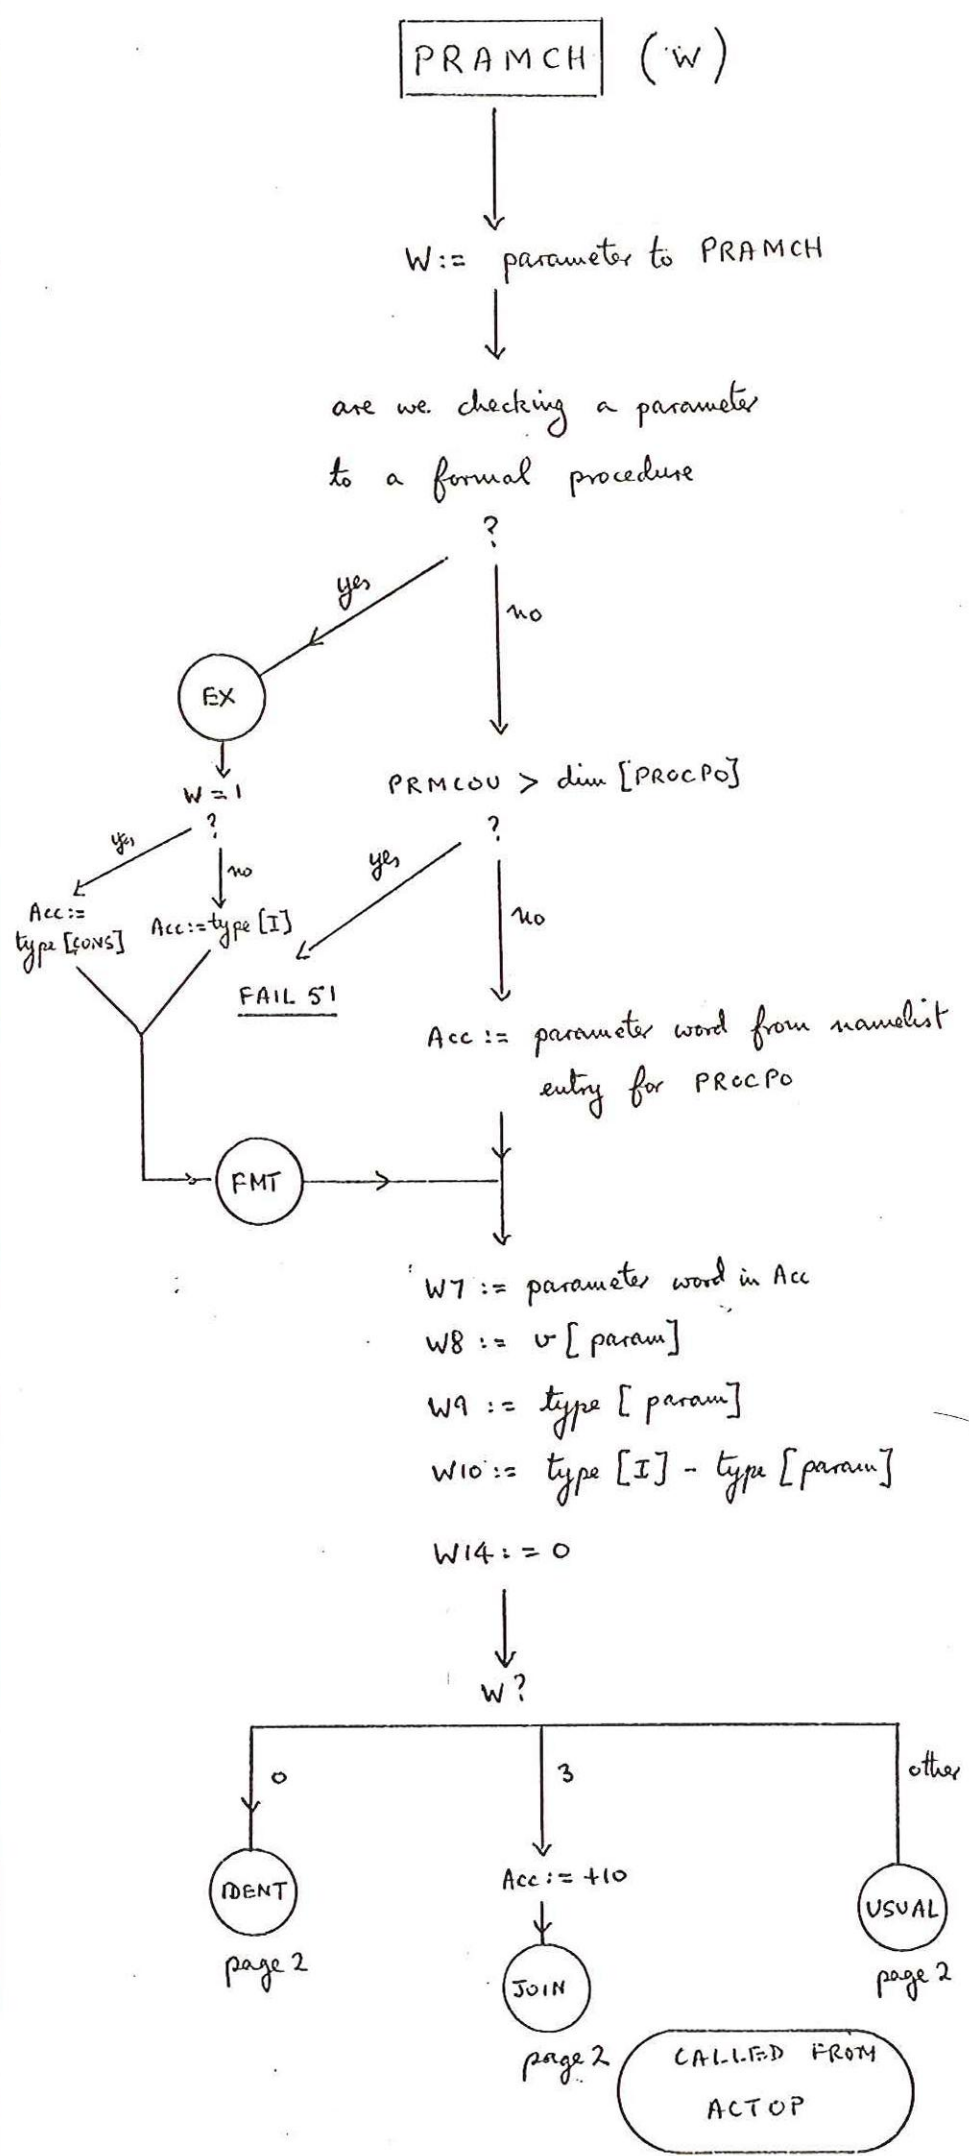 PRAMCH (W)
W := parameter to PRAMCH
are we checking a parameter
to a formal procedure
?
yes
no
EX
W = 1
?
PRMCOU > dim [PROCPO]
?
yes
no
yes
no
Acc :=
type [CONS]
Acc := type [I]
FAIL 51
Acc := parameter word from namelist
entry for PROCPO
FMT
W7 := parameter word in Acc
W8 := v [param]
W9 := type [param]
W10 := type [I] - type [param]
W14 := 0
W?
0
3
other
IDENT
Acc := +10
USUAL
page 2
JOIN
page 2
page 2
CALLED FROM
ACTOP